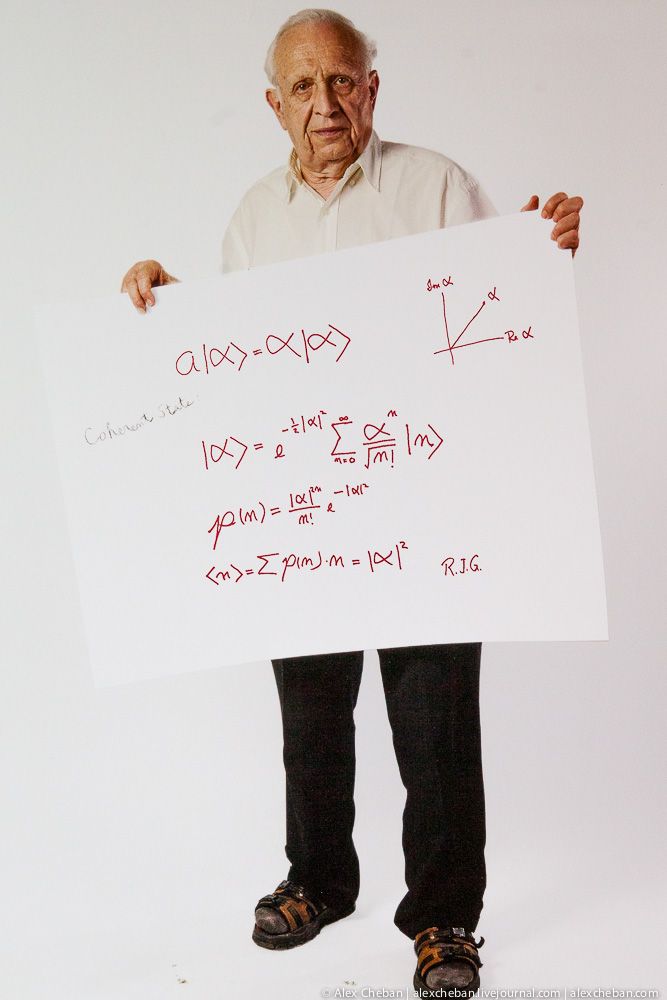 Im α
α
Re α
a|α⟩ = α|α⟩
Coherent State
|α⟩ = e^{-½|α|²} ∑_{n=0}^{∞} αⁿ/√n! |n⟩
p(n) = |α|²ⁿ/n! e^{-|α|²}
⟨n⟩ = ∑ p(n)·n = |α|²
R.J.G.
© Alex Cheban | alexcheban.livejournal.com | alexcheban.com